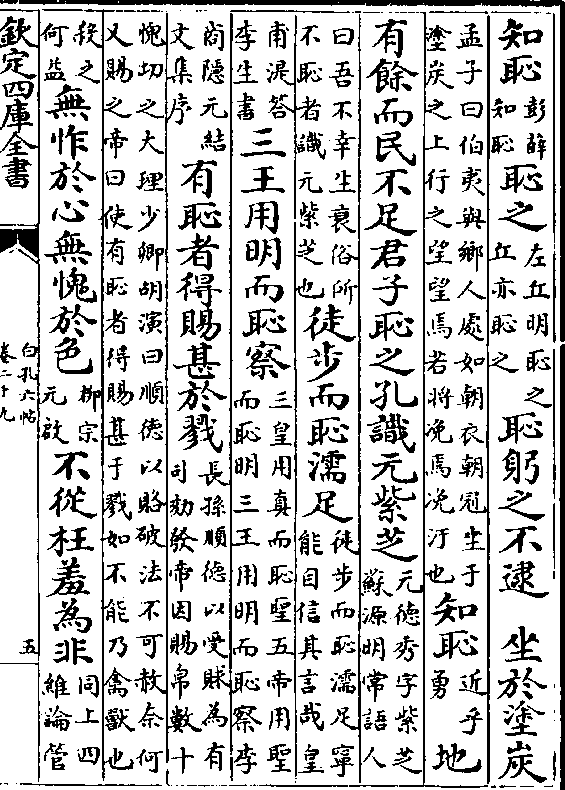 知恥彭薛知恥恥之左丘明恥之丘亦恥之恥躬之不逮　坐於塗炭
孟子曰伯夷與鄉人處如朝衣朝冠坐于塗炭之上行之望望焉若將浼焉浼汙也知恥近乎勇地
有餘而民不足君子恥之孔識元紫芝元德秀字紫芝蘇源明常語人
曰吾不幸生衰俗所不恥者識元紫芝也徒步而恥濡足徒步而恥濡足寧能自信其言哉皇
甫湜答李生書三王用明而恥察三皇用真而恥聖五帝用聖而恥明三王用明而恥察李
商隱元結文集序有恥者得賜甚於戮長孫順德以受賕為有司劾發帝因賜帛數十
愧切之大理少卿胡演曰順德以賂破法不可赦奈何又賜之帝曰使有恥者得賜甚于戮如不能乃禽獸也
殺之何益無怍於心無愧於色柳宗元啟不從枉羞為非同上四維論管
欽定四庫全書
白孔六帖
卷二十九
五